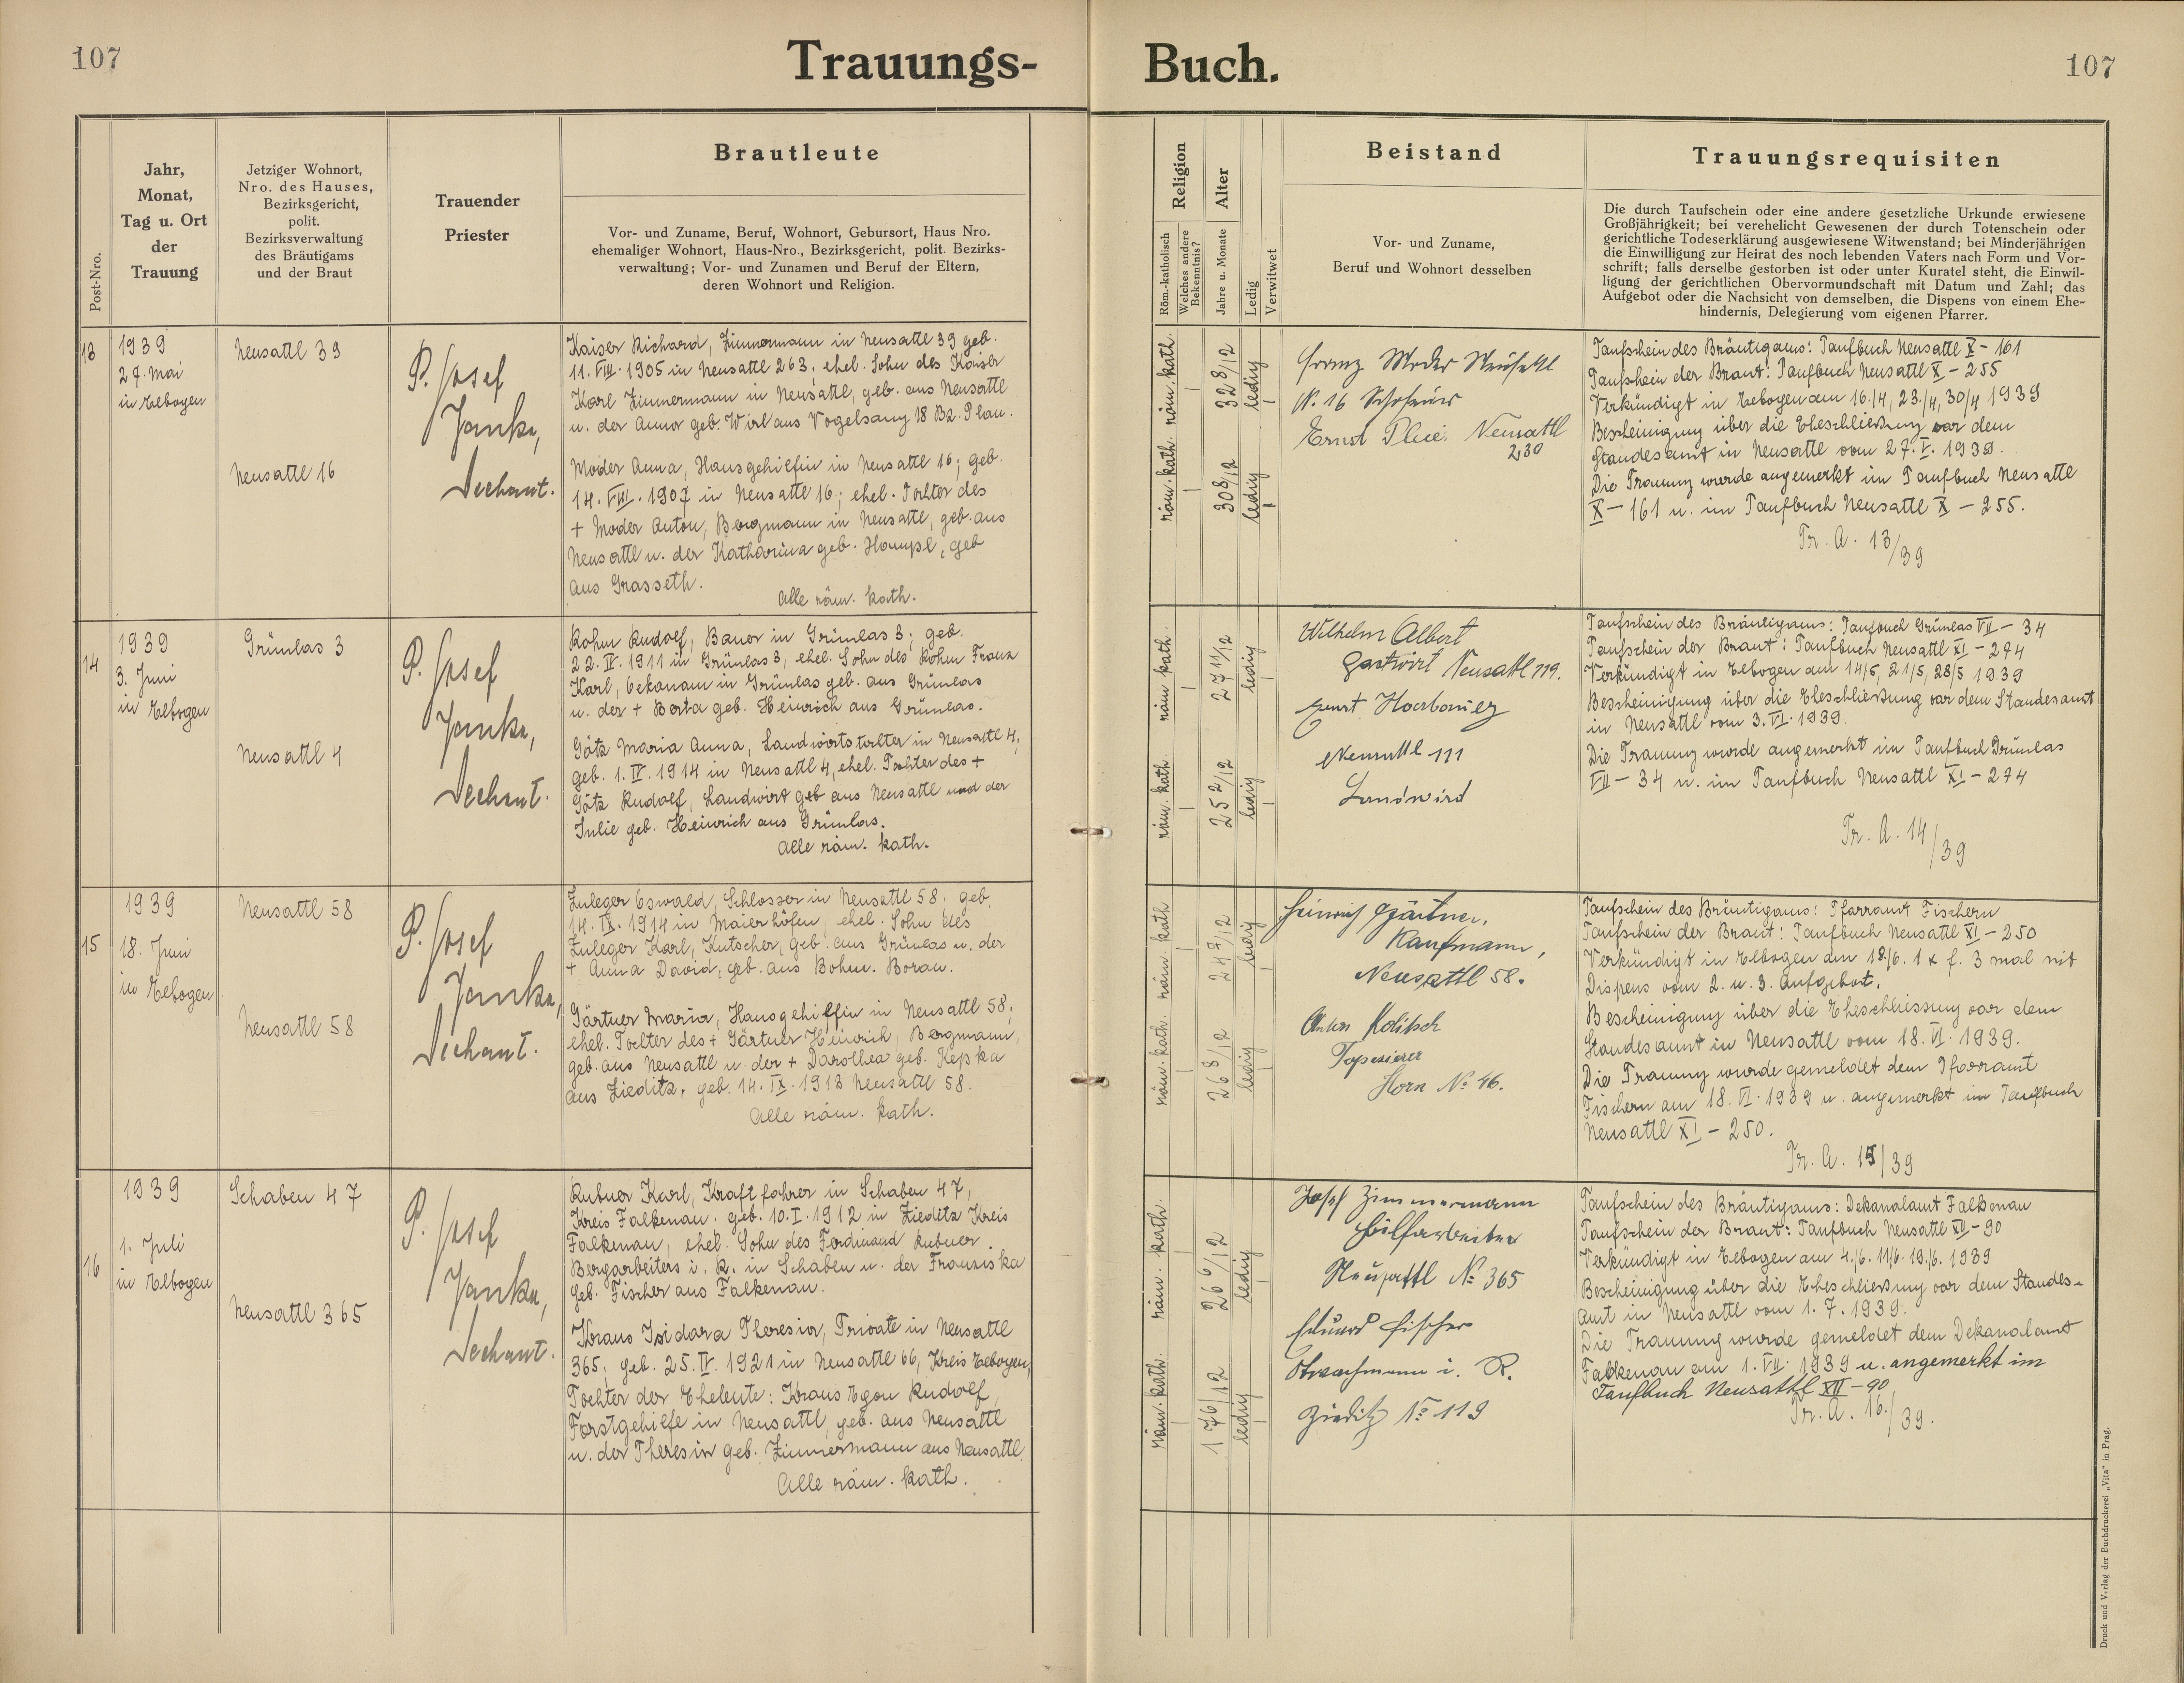 107
Trauungs-
Buch.
107
Post-Nro.
Jahr,
Monat,
Tag u. Ort
der
Trauung
Jetziger Wohnort,
Nro. des Hauses,
Bezirksgericht,
polit.
Bezirksverwaltung
des Bräutigams
und der Braut
Trauender
Priester
Brautleute
Vor- und Zuname, Beruf, Wohnort, Geburtsort, Haus Nro.
ehemaliger Wohnort, Haus-Nro., Bezirksgericht, polit. Bezirks-
verwaltung; Vor- und Zunamen und Beruf der Eltern,
deren Wohnort und Religion.
Religion
Röm.-katholisch
Welches andere
Bekenntnis?
Alter
Jahre u. Monate
Ledig
Verwitwet
Beistand
Vor- und Zuname,
Beruf und Wohnort desselben
Trauungsrequisiten
Die durch Taufschein oder eine andere gesetzliche Urkunde erwiesene
Großjährigkeit; bei verehelicht Gewesenen der durch Totenschein oder
gerichtliche Todeserklärung ausgewiesene Witwenstand; bei Minderjährigen
die Einwilligung zur Heirat des noch lebenden Vaters nach Form und Vor-
schrift; falls derselbe gestorben ist oder unter Kuratel steht, die Einwil-
ligung der gerichtlichen Obervormundschaft mit Datum und Zahl; das
Aufgebot oder die Nachsicht von demselben, die Dispens von einem Ehe-
hindernis, Delegierung vom eigenen Pfarrer.
13
1939
27. Mai
in Elbogen
Neusattl 39
Neusattl 16
P. Josef
Janka,
Dechant.
Kaiser Richard, Zimmermann in Neusattl 39 geb.
11. VIII. 1905 in Neusattl 263, ehel. Sohn des Kaiser
Karl Zimmermann in Neusattl, geb. aus Neusattl
u. der Anna geb. Wirl aus Vogelsang 18 Bz. Plan.
Moder Anna, Hausgehilfin in Neusattl 16; geb.
14. VIII. 1907 in Neusattl 16; ehel. Tochter des
+ Moder Anton, Bergmann in Neusattl, geb. aus
Neusattl u. der Katharina geb. Hampl, geb
aus Grasseth.
Alle röm. kath.
röm. kath. röm. kath.
30 8/12 32 8/12
ledig ledig
Franz Moder Neusattl
N. 16
Ernst Neusattl
230
Taufschein des Bräutigams: Taufbuch Neusattl X - 161
Taufschein der Braut: Taufbuch Neusattl X - 255
Verkündigt in Elbogen am 16./4, 23./4, 30/4 1939
Bescheinigung über die Eheschließung vor dem
Standesamt in Neusattl vom 27. V. 1939.
Die Trauung wurde angemerkt im Taufbuch Neusattl
X - 161 u. im Taufbuch Neusattl X - 255.
Tr. A. 13/39
14
1939
3. Juni
in Elbogen
Grünlas 3
Neusattl 4
P. Josef
Janka,
Dechant.
Kohm Rudolf, Bauer in Grünlas 3; geb.
22. IV. 1911 in Grünlas 3, ehel. Sohn des Kohm Franz
Karl, Oekonom in Grünlas geb. aus Grünlas
u. der + Berta geb. Heinrich aus Grünlas.
Götz Maria Anna, Landwirtstochter in Neusattl 4,
geb. 1. IV. 1914 in Neusattl 4, ehel. Tochter des +
Götz Rudolf, Landwirt geb aus Neusattl und der
Julie geb. Heinrich aus Grünlas.
Alle röm. kath.
röm. kath. röm. kath.
25 2/12 27 11/12
ledig ledig
Wilhelm Albert
Gastwirt Neusattl 119.
Ernst
Neusattl 111
Landwird
Taufschein des Bräutigams: Taufbuch Grünlas VII - 34
Taufschein der Braut: Taufbuch Neusattl XI - 274
Verkündigt in Elbogen am 14/5, 21/5, 28/5 1939
Bescheinigung über die Eheschließung vor dem Standesamt
in Neusattl vom 3. VI. 1939.
Die Trauung wurde angemerkt im Taufbuch Grünlas
VII - 34 u. im Taufbuch Neusattl XI - 274
Tr. A. 14/39
15
1939
18. Juni
in Elbogen
Neusattl 58
Neusattl 58
P. Josef
Janka,
Dechant.
Zuleger Oswald, Schlosser in Neusattl 58. geb.
14. IX. 1914 in Maierhöfen, ehel. Sohn des
Zuleger Karl, Kutscher, geb. aus Grünlas u. der
+ Anna David, geb. aus Bohm. Borau.
Gärtner Maria, Hausgehilfin in Neusattl 58;
ehel. Tochter des + Gärtner Heinrich, Bergmann,
geb. aus Neusattl u. der + Dorothea geb. Kepka
aus Zieditz, geb. 14. IX. 1913 Neusattl 58.
Alle röm. kath.
röm. kath. röm. kath
26 8/12 24 9/12
ledig ledig
Heinrich Gärtner,
Kaufmann,
Neusattl 58.
Anton Kolitsch
Tapezierer
Horn No 46.
Taufschein des Bräutigams: Pfarramt Fischern
Taufschein der Braut: Taufbuch Neusattl XI - 250
Verkündigt in Elbogen am 18./6. 1 x f. 3 mal mit
Dispens vom 2. u. 3. Aufgebot.
Bescheinigung über die Eheschliessung vor dem
Standesamt in Neusattl vom 18. VI. 1939.
Die Trauung wurde gemeldet dem Pfarramt
Fischern am 18. VI. 1939 u. angemerkt im Taufbuch
Neusattl XI - 250.
Tr. A. 15/39
16
1939
1. Juli
in Elbogen
Schaben 47
Neusattl 365
P. Josef
Janka,
Dechant.
Rubner Karl, Kraftfahrer in Schaben 47,
Kreis Falkenau. geb. 10. I. 1912 in Zieditz Kreis
Falkenau, ehel. Sohn des Ferdinand Rubner
Bergarbeiters i. R. in Schaben u. der Franziska
geb. Fischer aus Falkenau.
Kraus Isidora Theresia, Private in Neusattl
365, geb. 25. IV. 1921 in Neusattl 66, Kreis Elbogen,
Tochter der Eheleute: Kraus Egon Rudolf,
Forstgehilfe in Neusattl, geb. aus Neusattl
u. der Theresia geb. Zimmermann aus Neusattl.
Alle röm. kath.
röm. kath. röm. kath.
26 6/12
ledig ledig
Josef Zimmermann
Hilfsarbeiter
Neusattl No 365
Eduard Fischer
i. R.
Zieditz No 119
Taufschein des Bräutigams: Dekanalamt Falkenau
Taufschein der Braut: Taufbuch Neusattl XII - 90
Verkündigt in Elbogen am 4./6. 11/6. 19./6. 1939
Bescheinigung über die Eheschließung vor dem Standes-
amt in Neusattl vom 1. 7. 1939.
Die Trauung wurde gemeldet dem Dekanalamt
Falkenau am 1. VII. 1939 u. angemerkt im
Taufbuch Neusattl XII - 90
Tr. A. 16./39.
Druck und Verlag der Buchdruckerei „Vita" in Prag.